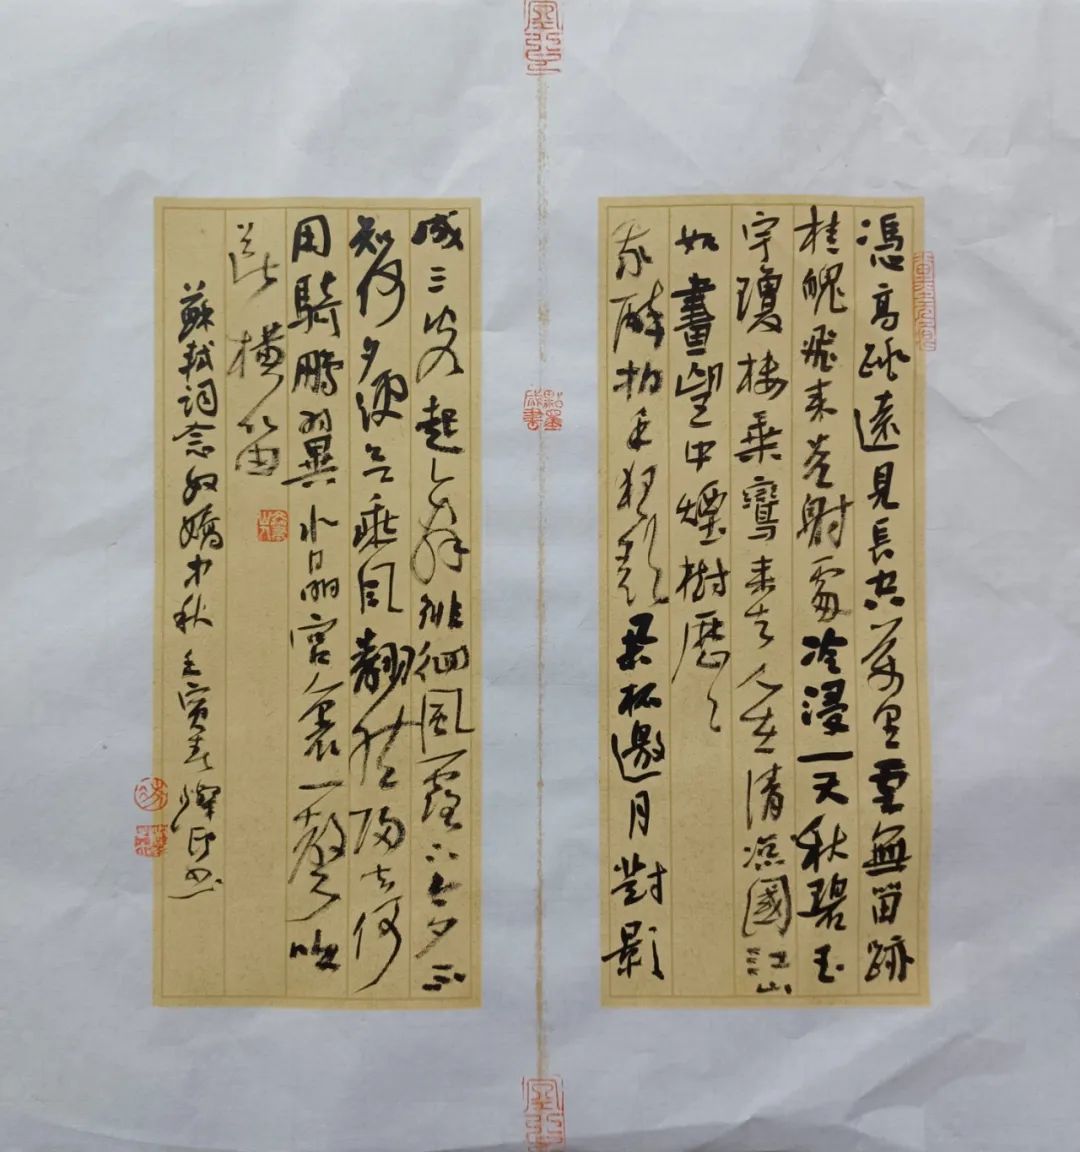 憑高眺遠見長空萬里雲無留跡
桂魄飛來光射處冷浸一天秋碧玉
宇瓊樓乘鸞來去人在清涼國江山
如畫望中煙樹歷々
我醉拍手狂歌舉杯邀月對影
成三客起舞徘徊風露下今夕不
知何夕便欲乘風翻然歸去何
用騎鵬翼水晶宮裏一聲吹
斷橫笛
蘇軾詞念奴嬌中秋 壬寅春